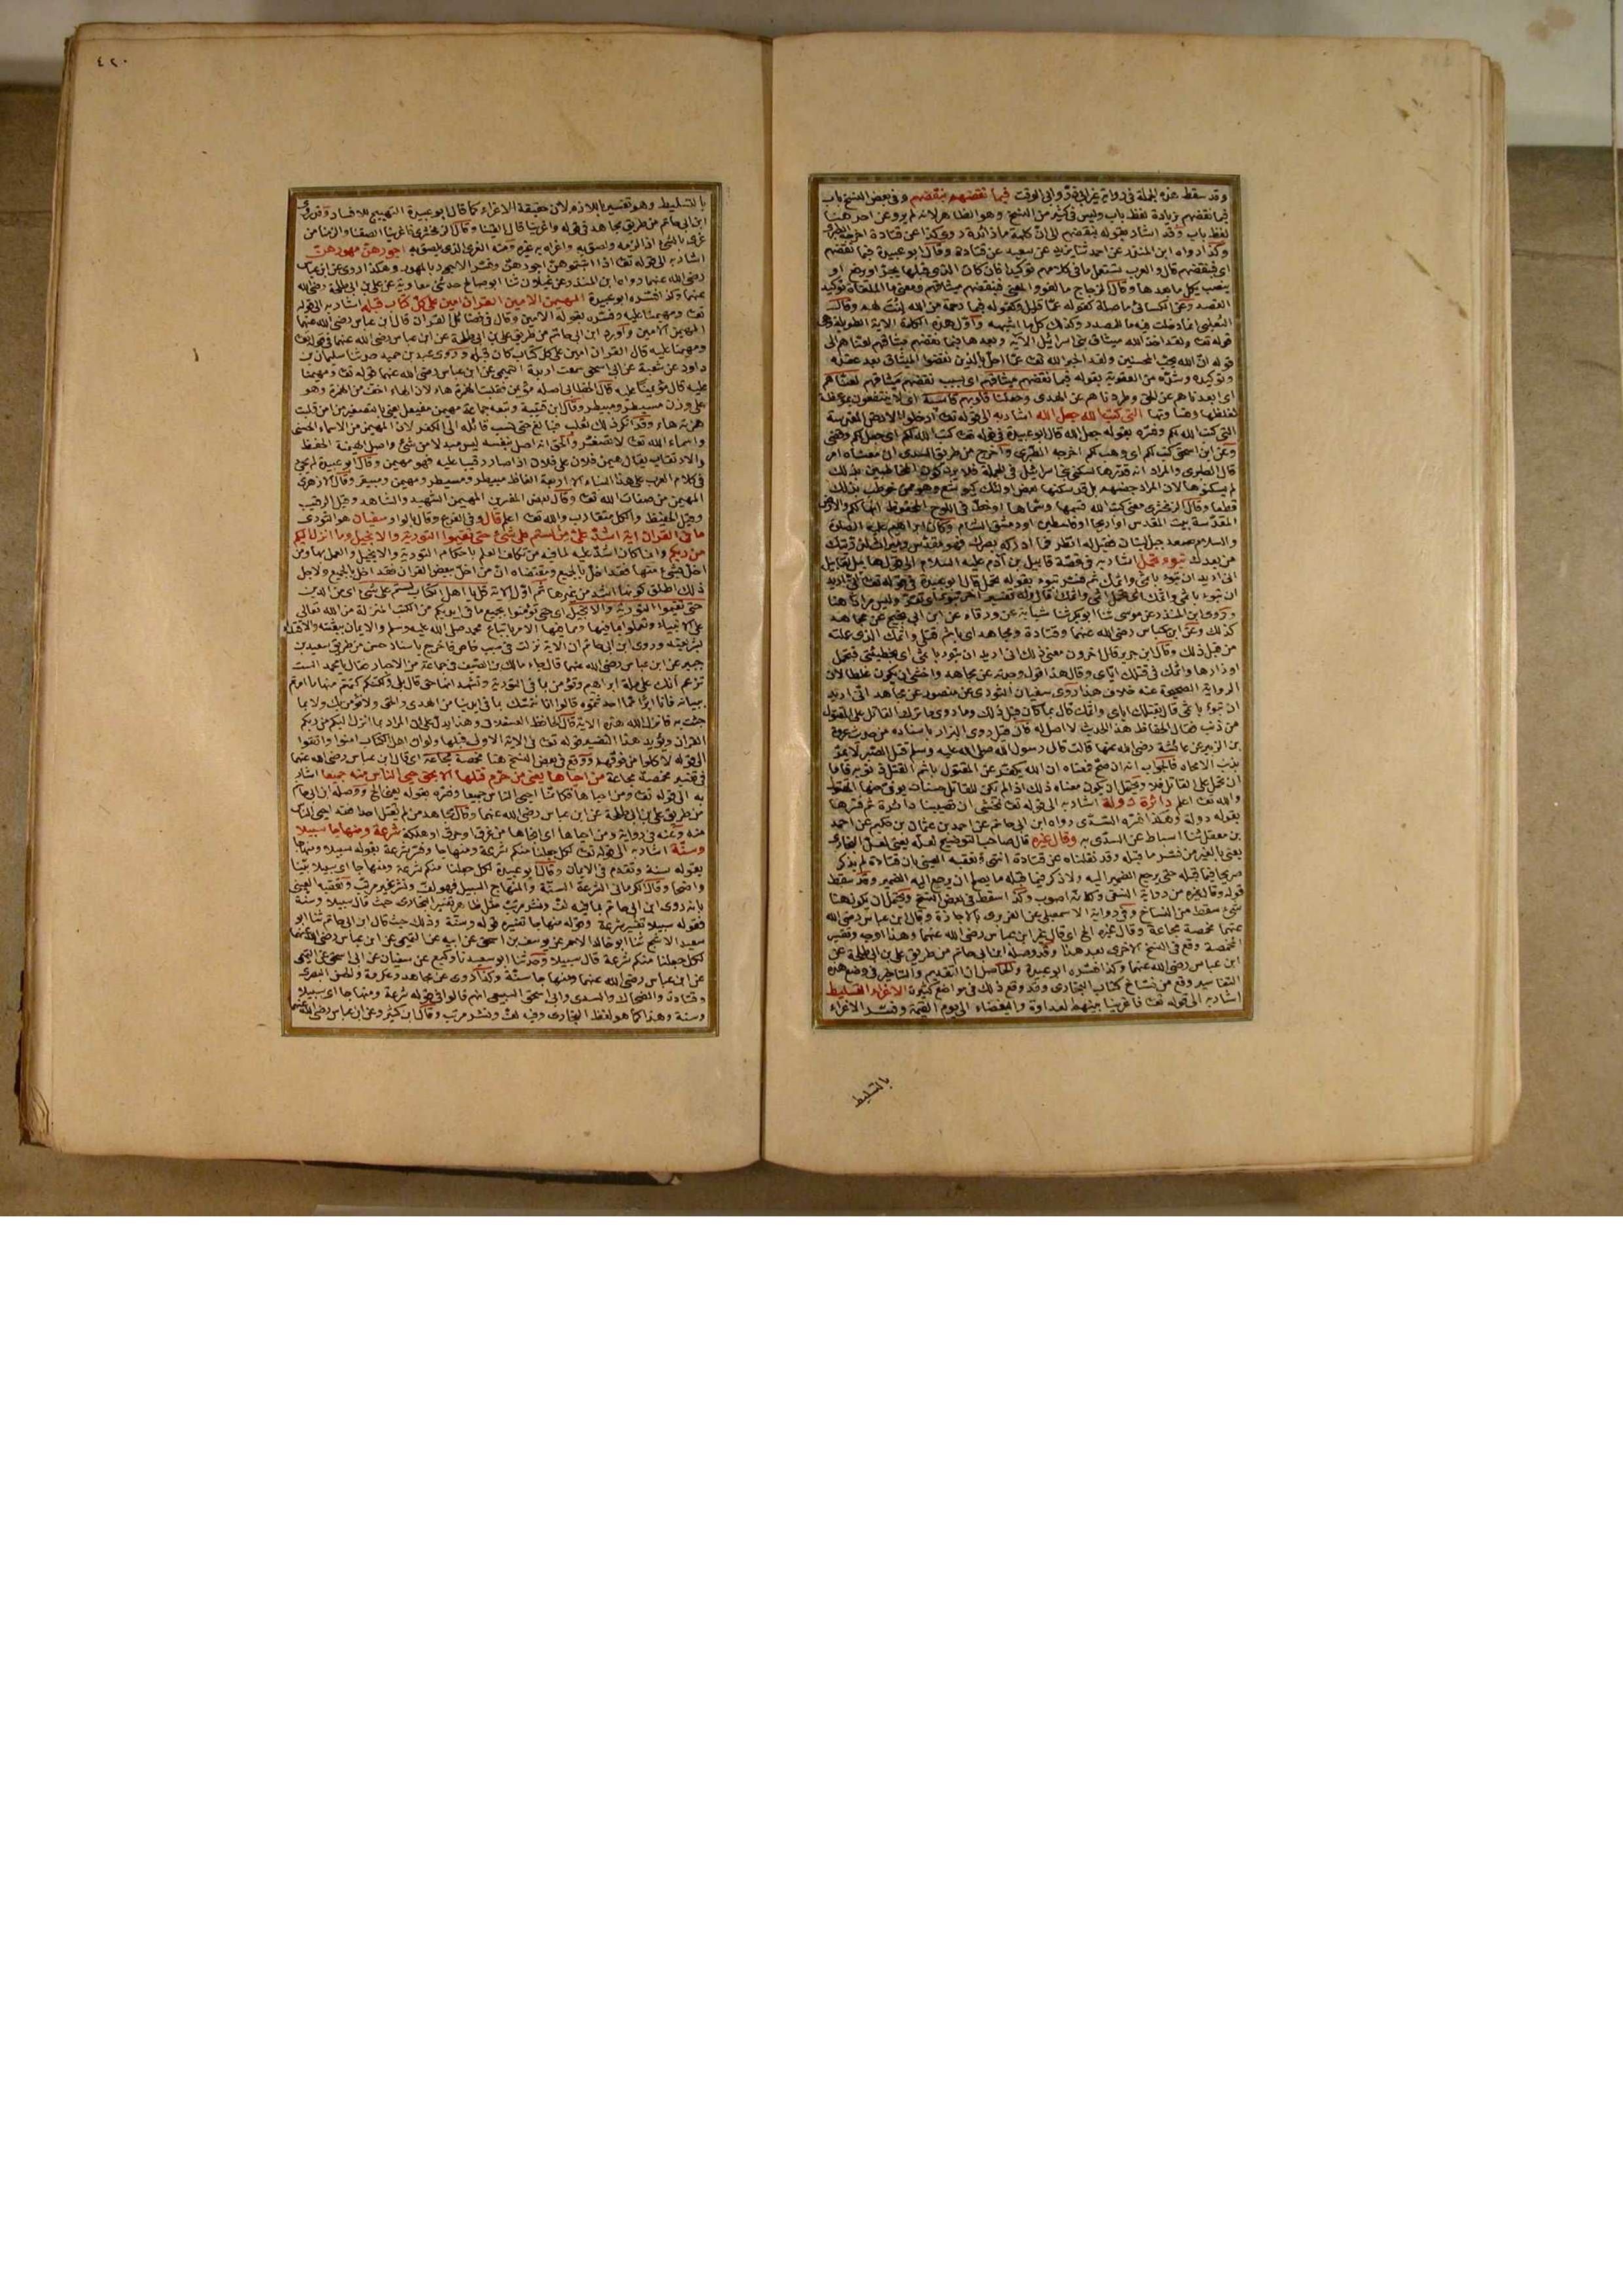 وقد سقط هذه الجملة في رواية غير ابي ذر وابي الوقت فبما نقضهم بنقضهم وفي بعض النسخ باب
فبما نقضهم بزيادة لفظ باب وليس في كثير من النسخ وهو الظاهر لانه لم يرو عن احد هنا
لفظ باب وقد اشار بقوله بنقضهم الى ان كلمة ما زائدة روى كذا عن قتادة اخرجه الطبري
وكذا رواه ابن المنذر عن احمد ثنا يزيد عن سعيد عن قتادة وقال ابو عبيدة فبما نقضهم
اي فبنقضهم قال والعرب تستعمل ما في كلامهم توكيدا فان كان الذي قبلها يجر او يرفع او
ينصب عمل ما بعدها وقال الزجاج ما لغو والمعنى فبنقضهم ميثاقهم ومعنى ما الملغاة توكيد
القصد وعن الكسائي ما صلة كقوله عما قليل وكقوله فبما رحمة من الله لنت لهم وقال
الثعلبي انما دخلت فيه ما للمصدر وكذلك كل ما اشبهه واول هذه الكلمة الاية الطويلة وهي
قوله تعا ولقد اخذ الله ميثاق بني اسرائيل الاية وبعدها فبما نقضهم ميثاقهم لعناهم الى
قوله ان الله يحب المحسنين ولقد اخبر الله تعا عما احل بالذين نقضوا الميثاق بعد عقده
وتوكيده وشده من العقوبة بقوله فبما نقضهم ميثاقهم اي بسبب نقضهم ميثاقهم لعناهم
اي ابعدناهم عن الحق وطردناهم عن الهدى وجعلنا قلوبهم قاسية اي لا ينتفعون بموعظة
لغلظها وقساوتها التي كتب الله جعل الله اشار به الى قوله تعا ادخلوا الارض المقدسة
التي كتب الله لكم وفسره بقوله جعل الله قال ابو عبيدة في قوله تعا كتب الله لكم اي جعل لكم وقضى
وعن ابن اسحق كتب لكم اي وهب لكم اخرجه الطبري واخرج من طريق السدي ان معناه امر
قال الطبري والمراد انه قدرها لسكنى بني اسرائيل في الجملة فلا يرد كون المخاطبين بذلك
لم يسكنوها لان المراد جنسهم بل قد سكنها بعض اولئك كيوشع وهو ممن خوطب بذلك
قطعا وقال الزمخشري معنى كتب الله قسمها وسماها او خط في اللوح المحفوظ انها لكم والارض
المقدسة بيت المقدس او اريحا او فلسطين او دمشق الشام وكان ابراهيم عليه الصلاة
والسلام صعد جبل لبنان فقيل له انظر فما ادركه بصرك فهو مقدس وميراث لذريتك
من بعدك تبوء تحمل اشار به في قصة قابيل بن آدم عليه السلام الى قول هابيل لقابيل
اني اريد ان تبوء باثمي واثمك ثم فسر تبوء بقوله تحمل قال ابو عبيدة في قوله تعا اني اريد
ان تبوء باثمي واثمك اي تحمل اثمي واثمك قال وله تفسير اخر تبوء اي تقر وليس مرادا هنا
وروى ابن المنذر عن موسى ثنا ابو بكر ثنا شبابة عن ورقاء عن ابن ابي نجيح عن مجاهد
كذلك وعن ابن عباس رضي الله عنهما وقتادة ومجاهد اي باثم قتلي واثمك الذي عملته
من قبل ذلك وقال ابن جرير قال اخرون معنى ذلك اني اريد ان تبوء باثمي اي بخطيئتي فتحمل
اوزارها واثمك في قتلك اياي وقال هذا قول وجدته عن مجاهد واخشى ان يكون غلطا لان
الرواية الصحيحة عنه خلاف هذا روى سفيان الثوري عن منصور عن مجاهد اني اريد
ان تبوء باثمي قال بقتلك اياي واثمك قال بما كان قبل ذلك وما روى ما ترك القاتل على المقتول
من ذنب فقال الحفاظ هذا الحديث لا اصل له فان قيل روى البزار باسناده من حديث عروة
بن الزبير عن عائشة رضي الله عنها قالت قال رسول الله صلى الله عليه وسلم قتل الصبر لا يمر
بذنب الا محاه فالجواب انه ان صح فمعناه ان الله يكفر عن المقتول باثم القتل ذنوبه فاما
ان تحمل على القاتل فلا ويحتمل ان يكون معناه ذلك اذا لم تكن للقاتل حسنات يوفي منها المقتول
والله تعا اعلم دائرة دولة اشار به الى قوله تعا نخشى ان تصيبنا دائرة ثم فسرها
بقوله دولة وهكذا فسره السدي رواه ابن ابي حاتم عن احمد بن عثمان بن حكيم عن احمد
بن مفضل ثنا اسباط عن السدي به وقال غيره قال صاحب التوضيح لعله يعني لعل البخاري
يعني بالغير من فسر ما قبله وقد نقلناه عن قتادة انتهى وتعقبه العيني بان قتادة لم يذكر
صريحا فيما قبله حتى يرجع الضمير اليه ولا ذكر فيما قبله ما يصلح ان يرجع اليه الضمير وقد سقط
قوله وقال غيره من رواية النسفي وكانه اصوب وكذا سقط في بعض النسخ ويحتمل ان يكون هنا
شيء سقط من النساخ وفي رواية الاسمعيلي عن الفربري بالاجازة وقال ابن عباس رضي الله
عنهما مخمصة مجاعة وقال غيره الخ اي قال غير ابن عباس رضي الله عنهما وهذا اوجه وتفسير
المخمصة وقع في النسخ الاخرى بعد هذا وقد وصله ابن ابي حاتم من طريق علي بن ابي طلحة عن
ابن عباس رضي الله عنهما وكذا فسره ابو عبيدة والحاصل ان التقديم والتاخير في وضع هذه
التفاسير وقع من نساخ كتاب البخاري وقد وقع ذلك في مواضع كثيرة الاغراء التسليط
اشار به الى قوله تعا فاغرينا بينهم العداوة والبغضاء الى يوم القيمة وفسر الاغراء
بالتسليط
٤٢٠
بالتسليط وهو تفسير باللازم لان حقيقة الاغراء كما قال ابو عبيدة التهييج للافساد وقد روى
ابن ابي حاتم من طريق مجاهد في قوله واغرينا قال القينا وقال الزمخشري اغرينا الصقنا والزمنا من
غري بالشيء اذا لزمه ولصق به واغراه به غيره ومنه الغرى الذي يلصق به اجورهن مهورهن
اشار به الى قوله تعا اذا آتيتموهن اجورهن وفسر الاجور بالمهور وهكذا روى عن ابن عباس
رضي الله عنهما رواه ابن المنذر عن غيلان ثنا ابو صالح حدثني معاوية عن علي بن ابي طلحة رضي الله
عنهما وكذا فسره ابو عبيدة المهيمن الامين القران امين على كل كتاب قبله اشار به الى قوله
تعا ومهيمنا عليه وفسره بقوله الامين وقال في فضائل القران قال ابن عباس رضي الله عنهما
المهيمن الامين واورد ابن ابي حاتم من طريق علي بن ابي طلحة عن ابن عباس رضي الله عنهما في قوله تعا
ومهيمنا عليه قال القران امين على كل كتاب كان قبله وروى عبد بن حميد حدثنا سليمان بن
داود عن شعبة عن ابي اسحق سمعت اربدة التميمي عن ابن عباس رضي الله عنهما قوله تعا ومهيمنا
عليه قال مؤتمنا عليه قال الخطابي اصله مؤيمن فقلبت الهمزة هاء لان الهاء اخف من الهمزة وهو
على وزن مسيطر ومبيطر وقال ابن قتيبة وتبعه جماعة مهيمن مفيعل يعني بالتصغير من امن قلبت
همزته هاء وقد انكر ذلك ثعلب فبالغ حتى نسب قائله الى الكفر لان المهيمن من الاسماء الحسنى
واسماء الله تعا لا تصغر والحق انه اصل بنفسه ليس مبدلا من شيء واصل الهيمنة الحفظ
والارتقاب يقال هيمن فلان على فلان اذا صار رقيبا عليه فهو مهيمن وقال ابو عبيدة لم يجئ
في كلام العرب على هذا البناء الا اربعة الفاظ مبيطر ومسيطر ومهيمن ومبيقر وقال الازهري
المهيمن من صفات الله تعا وقال بعض المفسرين المهيمن الشهيد والشاهد وقيل الرقيب
وقيل الحفيظ والكل متقارب والله تعا اعلم قال وفي الفرع وقال بالواو سفيان هو الثوري
ما في القران اية اشد علي من لستم على شيء حتى تقيموا التورية والانجيل وما انزل اليكم
من ربكم وانما كان اشد عليه لما فيه من تكلف العلم باحكام التورية والانجيل والعمل بها ومن
اخل بشيء منها فقد اخل بالجميع ومقتضاه ان من اخل ببعض القران فقد اخل بالجميع ولاجل
ذلك اطلق كونها اشد من غيرها ثم اول الاية قل يا اهل الكتاب لستم على شيء اي من الدين
حتى تقيموا التورية والانجيل اي حتى تؤمنوا بجميع ما في ايديكم من الكتب المنزلة من الله تعالى
على الانبياء وتعملوا بما فيها ومما فيها الامر باتباع محمد صلى الله عليه وسلم والايمان ببعثته والاقتداء
بشريعته وروى ابن ابي حاتم ان الاية نزلت في سبب خاص فاخرج باسناد حسن من طريق سعيد بن
جبير عن ابن عباس رضي الله عنهما قال جاء مالك بن الصيف في جماعة من الاحبار فقال يا محمد الست
تزعم انك على ملة ابراهيم وتؤمن بما في التورية وتشهد انها حق قال بلى ولكنكم كتمتم منها ما امرتم
ببيانه فانا ابرأ مما احدثتموه قالوا انا نتمسك بما في ايدينا من الهدى والحق ولا نؤمن بك ولا بما
جئت به فانزل الله هذه الاية قال الحافظ العسقلاني وهذا يدل على ان المراد بما انزل اليكم من ربكم
القران ويؤيد هذا التفسير قوله تعا في الاية الاولى قبلها ولو ان اهل الكتاب امنوا واتقوا
الى قوله لاكلوا من فوقهم ووقع في بعض النسخ هنا مخمصة مجاعة اي قال ابن عباس رضي الله عنهما
في تفسير مخمصة مجاعة من احياها يعني من حرم قتلها الا بحق حيي الناس منه جميعا اشار
به الى قوله تعا ومن احياها فكانما احيى الناس جميعا وفسره بقوله يعني الخ ووصله ابن ابي حاتم
من طريق علي بن ابي طلحة عن ابن عباس رضي الله عنهما وقال مجاهد من لم يقتل احدا فقد احيى الناس
منه وعنه في رواية ومن احياها اي انجاها من غرق او حرق او هلكة شرعة ومنهاجا سبيلا
وسنة اشار به الى قوله تعا لكل جعلنا منكم شرعة ومنهاجا وفسر شرعة بقوله سبيلا ومنهاجا
بقوله سنة وتقدم في الايمان وقال ابو عبيدة لكل جعلنا منكم شرعة ومنهاجا اي سبيلا بينا
واضحا وقال الكرماني الشرعة السنة والمنهاج السبيل فهو لف ونشر غير مرتب وتعقبه العيني
بانه روى ابن ابي حاتم بما فيه لف ونشر مرتب مثل ظاهر تفسير البخاري حيث قال سبيلا وسنة
فقوله سبيلا تفسير شرعة وقوله منهاجا تفسيره قوله وسنة وذلك حيث قال ابن ابي حاتم ثنا ابو
سعيد الاشج ثنا ابو خالد الاحمر عن يوسف بن اسحق عن ابيه عن التميمي عن ابن عباس رضي الله عنهما
لكل جعلنا منكم شرعة قال سبيلا وحدثنا ابو سعيد نا وكيع عن سفيان عن ابي اسحق عن التميمي
عن ابن عباس رضي الله عنهما ومنهاجا سنة وكذا روى عن مجاهد وعكرمة والحسن البصري
وقتادة والضحاك والسدي وابي اسحق السبيعي انهم قالوا في قوله شرعة ومنهاجا اي سبيلا
وسنة وهذا كما هو لفظ البخاري وفيه لف ونشر مرتب وقال ابن كثير وعن ابن عباس رضي الله عنهما